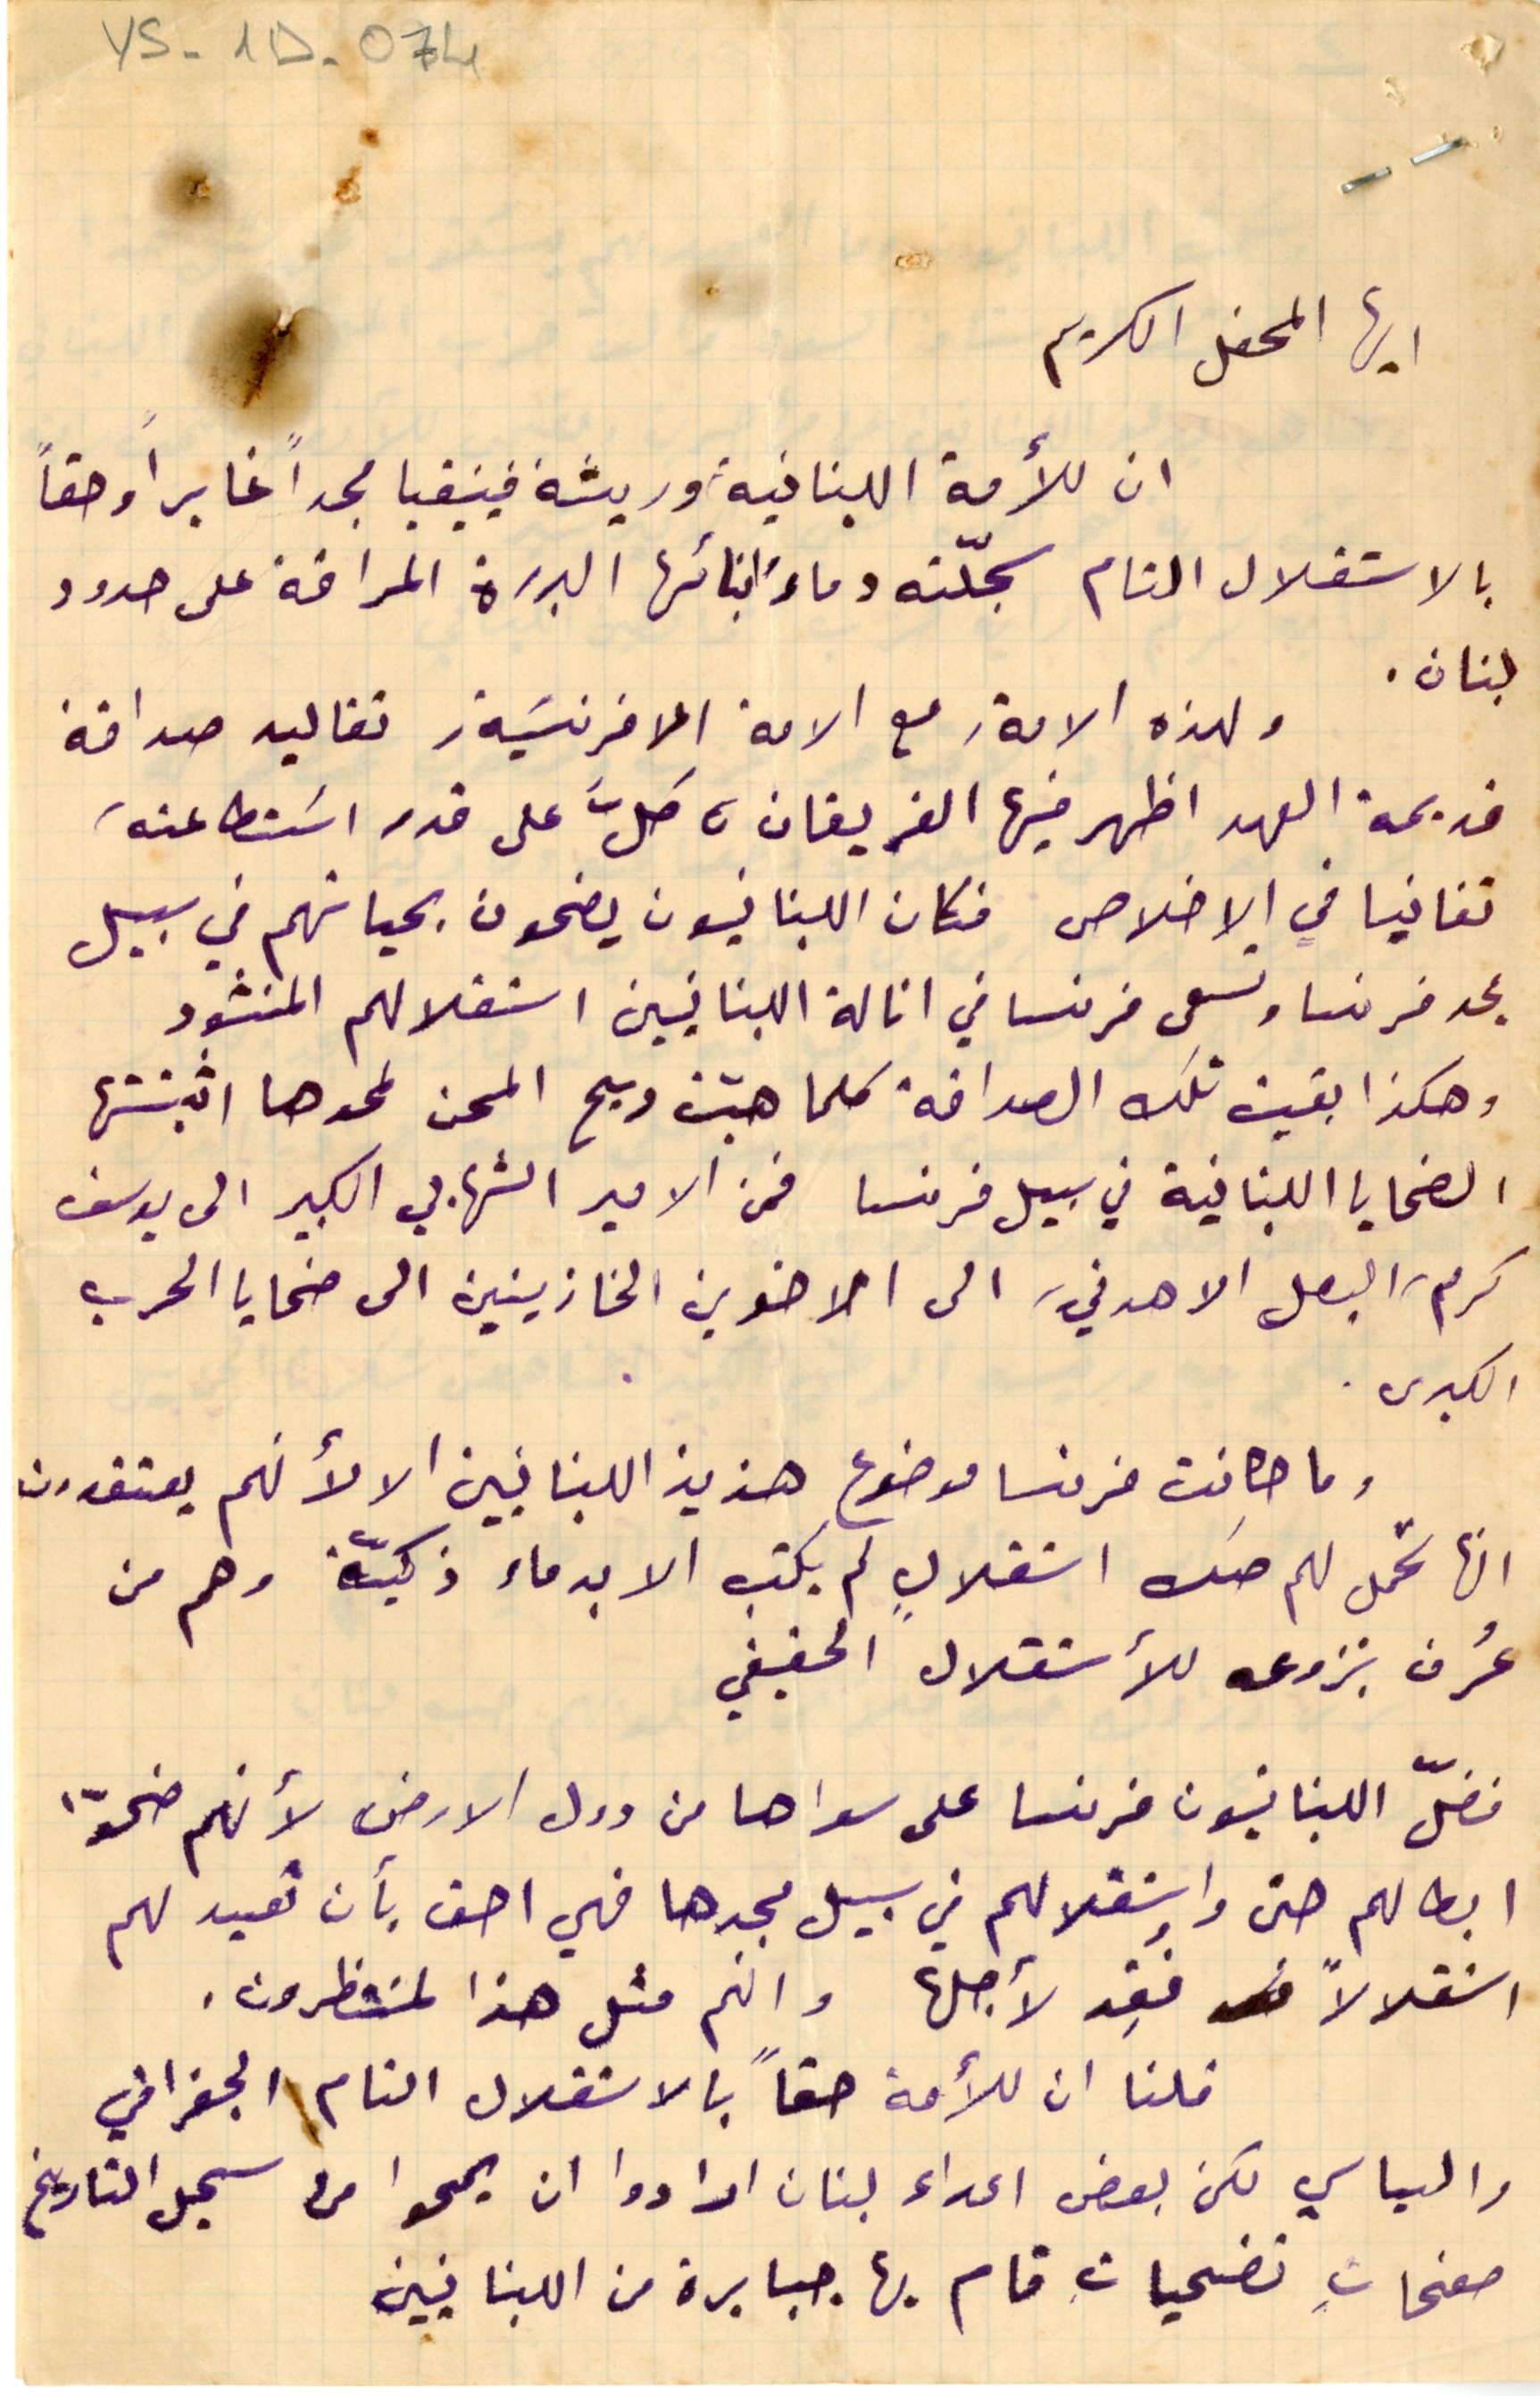 YS-1D-074
ايها المحفل الكريم
ان للأمة اللبنانية، وريثة فينيقيا مجداً غابراً وحقاً
بالاستقلال التام سجّلته دماء ابنائها البررة المراقة على حدود
لبنان.
ولهذه الامة، مع الامة الافرنسية، تقاليد صداقة
قديمة العهد اظهر فيها الفريقان، كلٌ على قدر استطاعته،
تفانيا في الاخلاص فكان اللبنانيون يضحون بحياتهم في سبيل
مجد فرنسا وتسعى فرنسا في انالة اللبنانيين استقلالهم المنشود
وهكذا بقيت تلك الصداقة كلما هبّت ريح المحن لمحوها اثبتتها
الضحايا اللبنانية في سبيل فرنسا فمن الامير الشهابي الكبير الى يوسف
كرم، البطل الاهدني، الى الاخوين الخازينين الى ضحايا الحرب
الكبرى.
وما كانت فرنسا موضوع هذيذ اللبنانيين الا لأنهم يعتقدون
انها تحمل لهم صك استقلالٍ لم يكتب الا بدماء زكيّة وهم من
عُرف بنزوعه للأستقلال الحقيقي
فضلّ اللبنانيون فرنسا على سواها من دول الارض لأنهم ضحوّا
ابطالهم حتى واستقلالهم في سبيل مجدها فهي احق بأن تعيد لهم
استقلالاً فُقِد لأجلها وانهم مثل هذا لمنتظرون.
قلنا ان للأمة حقاً بالاستقلال التام الجغرافي
والسياسي لكن بعض اعداء لبنان ارادوا ان يمحوا من سجل التاريخ
صفحاتِ تضحياتٍ قام بها جبابرة من اللبنانيين